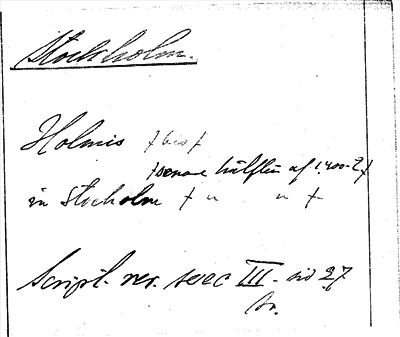 Stockholm.
Holmis
senare hälften af 1400-t
in Stocholm
Script. rer. svec III. sid 27